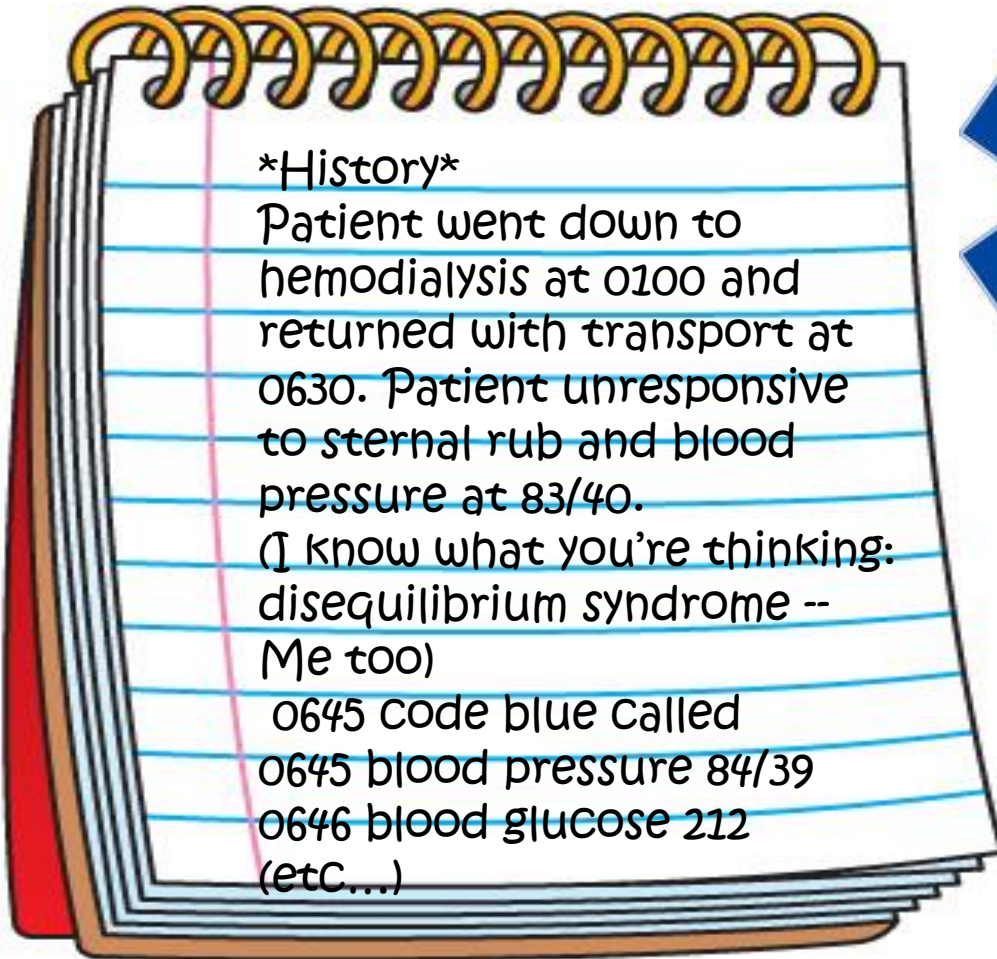 *History*
Patient went down to
hemodialysis at 0100 and
returned with transport at
0630. Patient unresponsive
to sternal rub and blood
pressure at 83/40.
(I know what you’re thinking:
disequilibrium syndrome --
Me too)
0645 code blue called
0645 blood pressure 84/39
0646 blood glucose 212
(etc...)